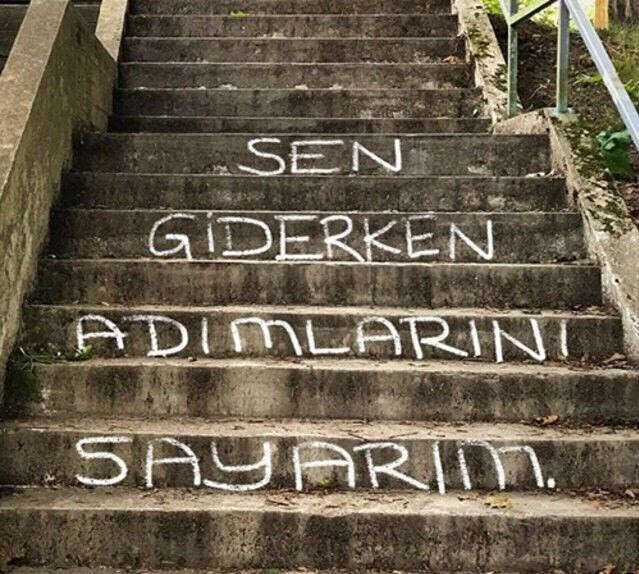 SEN
GİDERKEN
ADIMLARINI
SAYARIM.